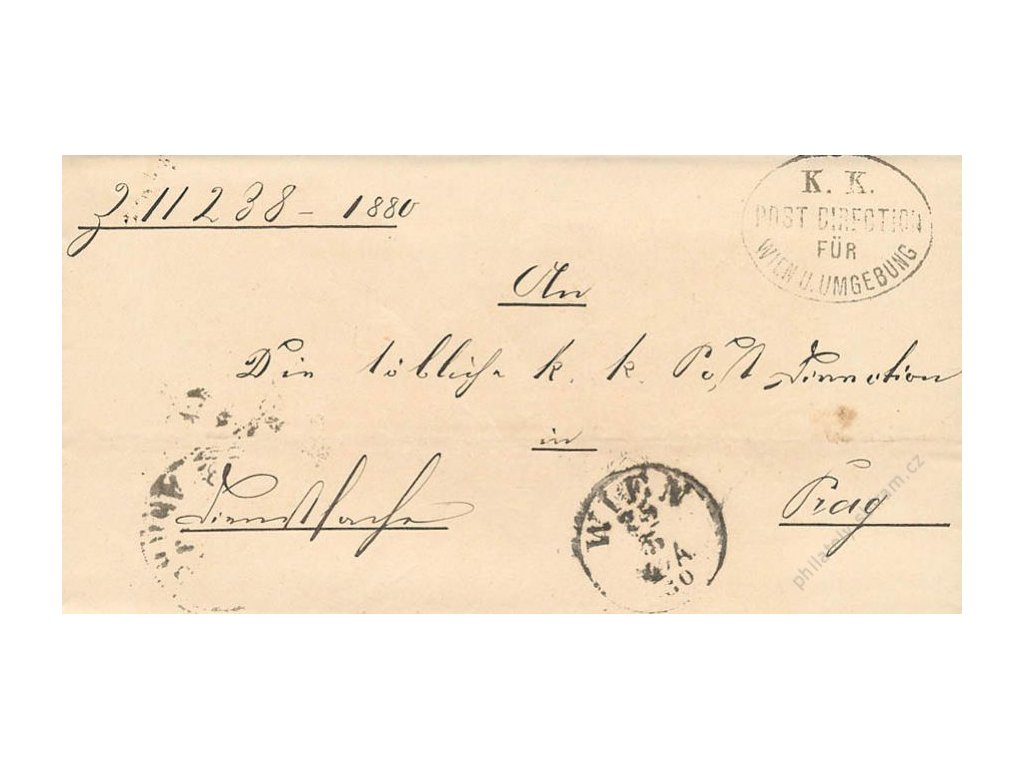 Z. 11238 – 1880
K. K.
POST DIRECTION
FÜR
WIEN U. UMGEBUNG
An
Die löbliche k. k. Post Direction
in
Prag
Dienstsache
WIEN
philatelie-seznam.cz